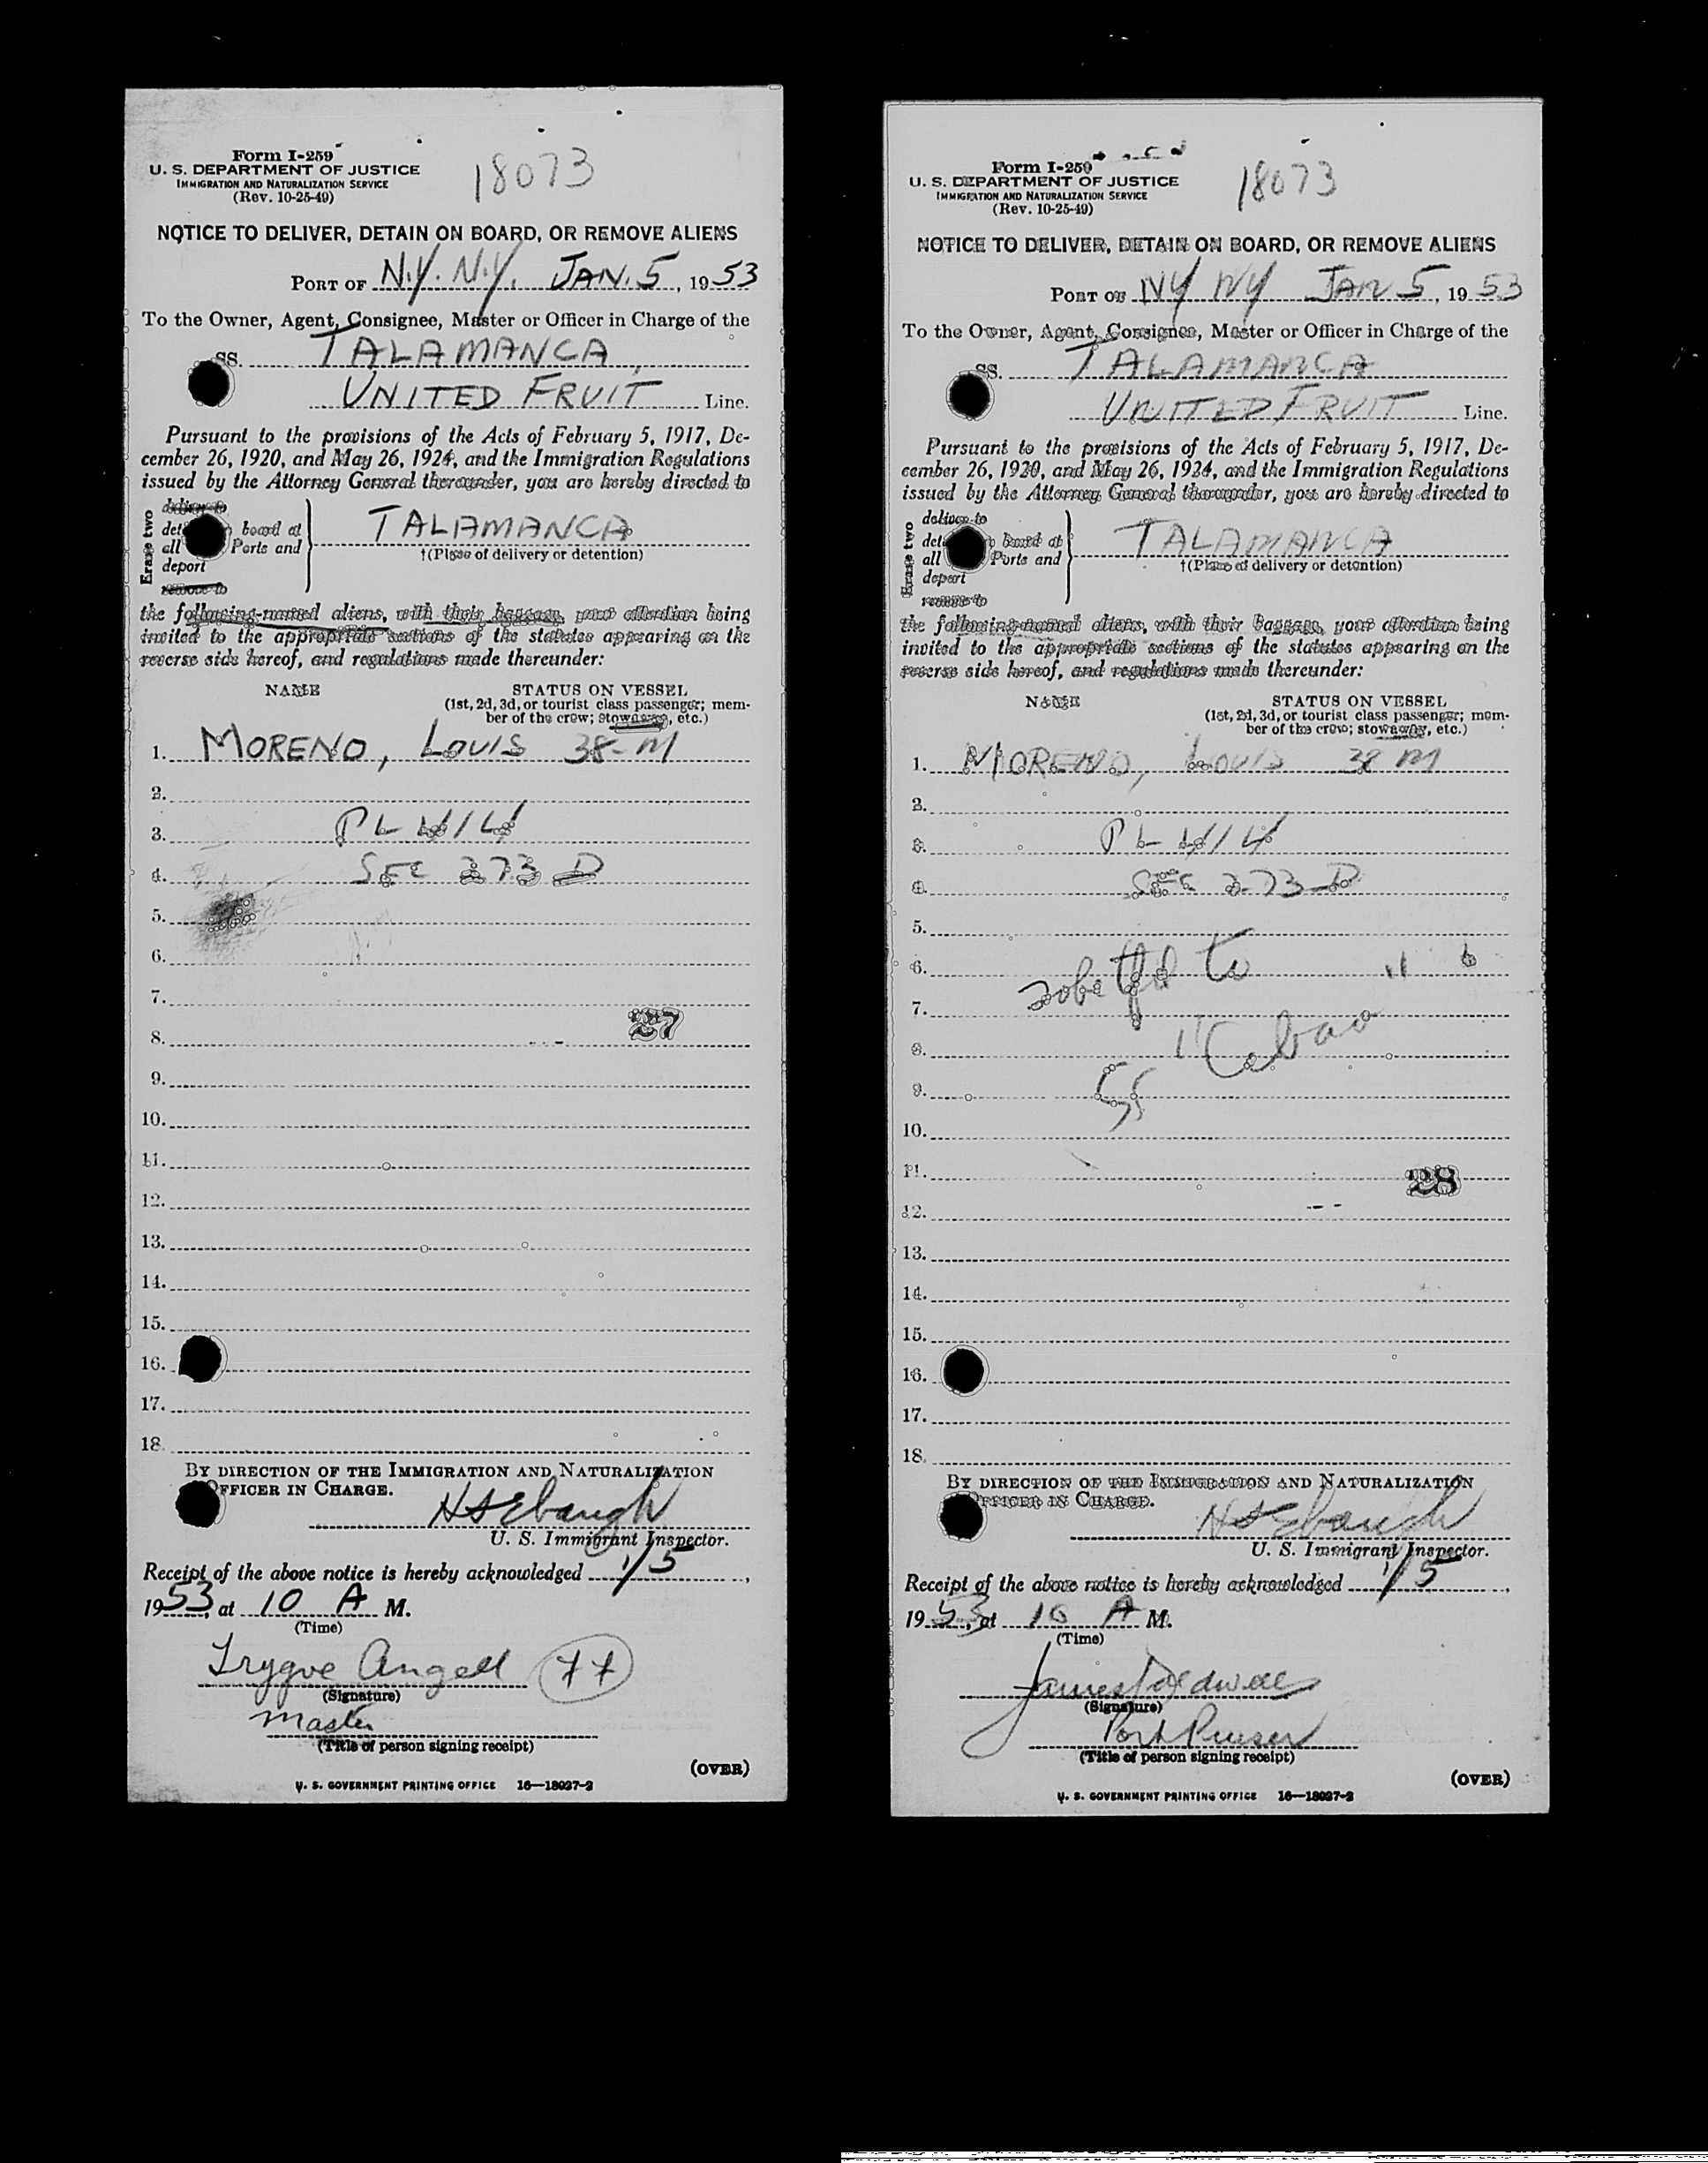 Form I-259
U. S. DEPARTMENT OF JUSTICE
IMMIGRATION AND NATURALIZATION SERVICE
(Rev. 10-25-49)
18073
NOTICE TO DELIVER, DETAIN ON BOARD, OR REMOVE ALIENS
PORT OF N.Y. N.Y. JAN. 5, 1953
To the Owner, Agent, Consignee, Master or Officer in Charge of the
SS. TALAMANCA,
UNITED FRUIT Line.
Pursuant to the provisions of the Acts of February 5, 1917, De-
cember 26, 1920, and May 26, 1924, and the Immigration Regulations
issued by the Attorney General thereunder, you are hereby directed to
Erase two
deliver to
board at
all Ports and
deport
remove to
TALAMANCA
†(Place of delivery or detention)
the following-named aliens, with their baggage, your attention being
invited to the appropriate sections of the statutes appearing on the
reverse side hereof, and regulations made thereunder:
NAME STATUS ON VESSEL
(1st, 2d, 3d, or tourist class passenger; mem-
ber of the crew; stowaway, etc.)
1. MORENO, LOUIS 38-M
2.
3. PL 414
4. SEC 273 D
5.
6.
7.
27
8.
9.
10.
11.
12.
13.
14.
15.
16.
17.
18.
BY DIRECTION OF THE IMMIGRATION AND NATURALIZATION
OFFICER IN CHARGE.
H S Ebaugh
U. S. Immigrant Inspector.
Receipt of the above notice is hereby acknowledged 1/5,
1953, at 10 A M.
(Time)
Trygve Angell
(Signature)
Master
(Title of person signing receipt)
(OVER)
U. S. GOVERNMENT PRINTING OFFICE 16—18027-2
Form I-259
U. S. DEPARTMENT OF JUSTICE
IMMIGRATION AND NATURALIZATION SERVICE
(Rev. 10-25-49)
18073
NOTICE TO DELIVER, DETAIN ON BOARD, OR REMOVE ALIENS
PORT OF NY NY JAN 5, 1953
To the Owner, Agent, Consignee, Master or Officer in Charge of the
SS. TALAMANCA
UNITED FRUIT Line.
Pursuant to the provisions of the Acts of February 5, 1917, De-
cember 26, 1920, and May 26, 1924, and the Immigration Regulations
issued by the Attorney General thereunder, you are hereby directed to
Erase two
deliver to
board at
all Ports and
deport
remove to
TALAMANCA
†(Place of delivery or detention)
the following-named aliens, with their baggage, your attention being
invited to the appropriate sections of the statutes appearing on the
reverse side hereof, and regulations made thereunder:
NAME STATUS ON VESSEL
(1st, 2d, 3d, or tourist class passenger; mem-
ber of the crew; stowaway, etc.)
1. MORENO, LOUIS 38 M
2.
3. PL 414
4. SEC 273 D
5.
6. to
7.
8.
9.
10.
11. 28
12.
13.
14.
15.
16.
17.
18.
BY DIRECTION OF THE IMMIGRATION AND NATURALIZATION
OFFICER IN CHARGE.
H S Ebaugh
U. S. Immigrant Inspector.
Receipt of the above notice is hereby acknowledged 1/5,
1953, at 10 A M.
(Time)
James
(Signature)
Port Purser
(Title of person signing receipt)
(OVER)
U. S. GOVERNMENT PRINTING OFFICE 16—18027-2